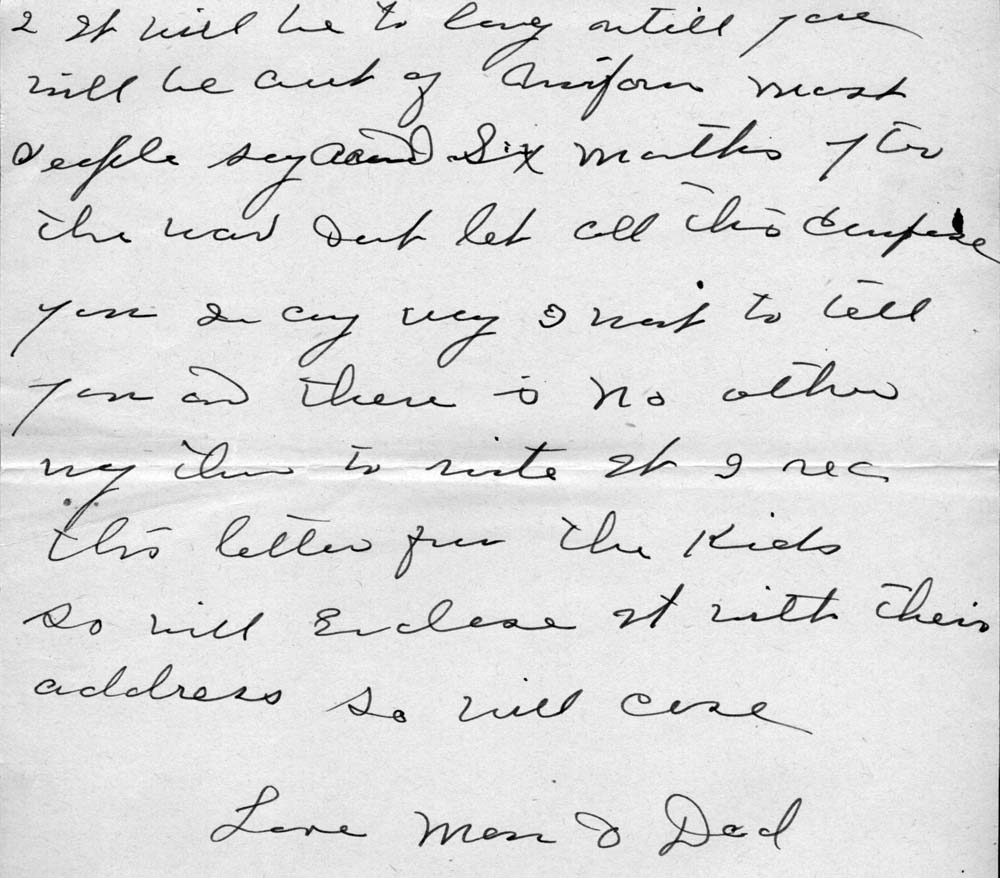 2 It will be to long untill you
will be out of Uniform most
People say around Six months after
the war Dont let all this Confuse
you In any way I want to tell
you and there is no other
way then to write It I rec
this letter from the Kids
so will Enclose It with their
address so will close
Love Mom & Dad